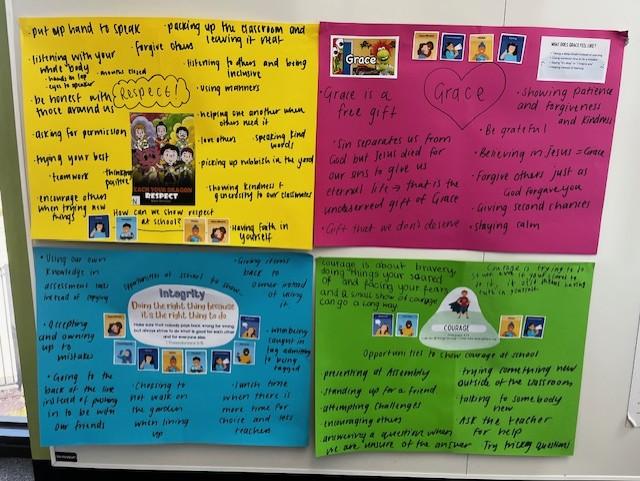 • put up hand to speak
• packing up the classroom and leaving it neat
• forgive others
• listening with your whole body
- hands in lap
- eyes to speaker
- mouths closed
• listening to others and being inclusive
• be honest with those around us
Respect!
• using manners
• asking for permission
• helping one another when others need it
• trying your best
• love others
• speaking kind words
• teamwork
• thinking positive
• picking up rubbish in the yard
EACH YOUR DRAGON
RESPECT
• encourage others when trying new things
• showing kindness & generosity to our classmates
How can we show respect at school?
• Having faith in yourself
Grace
WHAT DOES GRACE FEEL LIKE?
Grace
• Grace is a free gift
• showing patience and forgiveness and kindness
• Sin separates us from God but Jesus died for our sins to give us eternal life → that is the undeserved gift of Grace
• Be grateful
• Believing in Jesus = Grace
• Forgive others just as God forgave you
• Giving second chances
• Gift that we don't deserve
• staying calm
• Using our own knowledge in assessment tasks instead of copying
Opportunities at school to show-
• Giving items back to owner instead of using it
Integrity
Doing the right thing because it's the right thing to do
Make sure that nobody pays back wrong for wrong, but always strive to do what is good for each other and for everyone else.
• Accepting and owning up to mistakes
• When being caught in tag admitting to being tagged
• Going to the back of the line instead of pushing in to be with our friends
• Choosing to not walk on the garden when lining up
• lunch time when there is more time for choice and less teachers
Courage is about bravery, doing things your scared of and facing your fears and a small show of courage can go a long way
Courage is trying to
COURAGE
Opportunities to show courage at school
• presenting at Assembly
• standing up for a friend
• attempting challenges
• encouraging others
answering a question when we are unsure of the answer
trying something new outside of the classroom
talking to somebody new
ASK the teacher for help
Try tricky questions